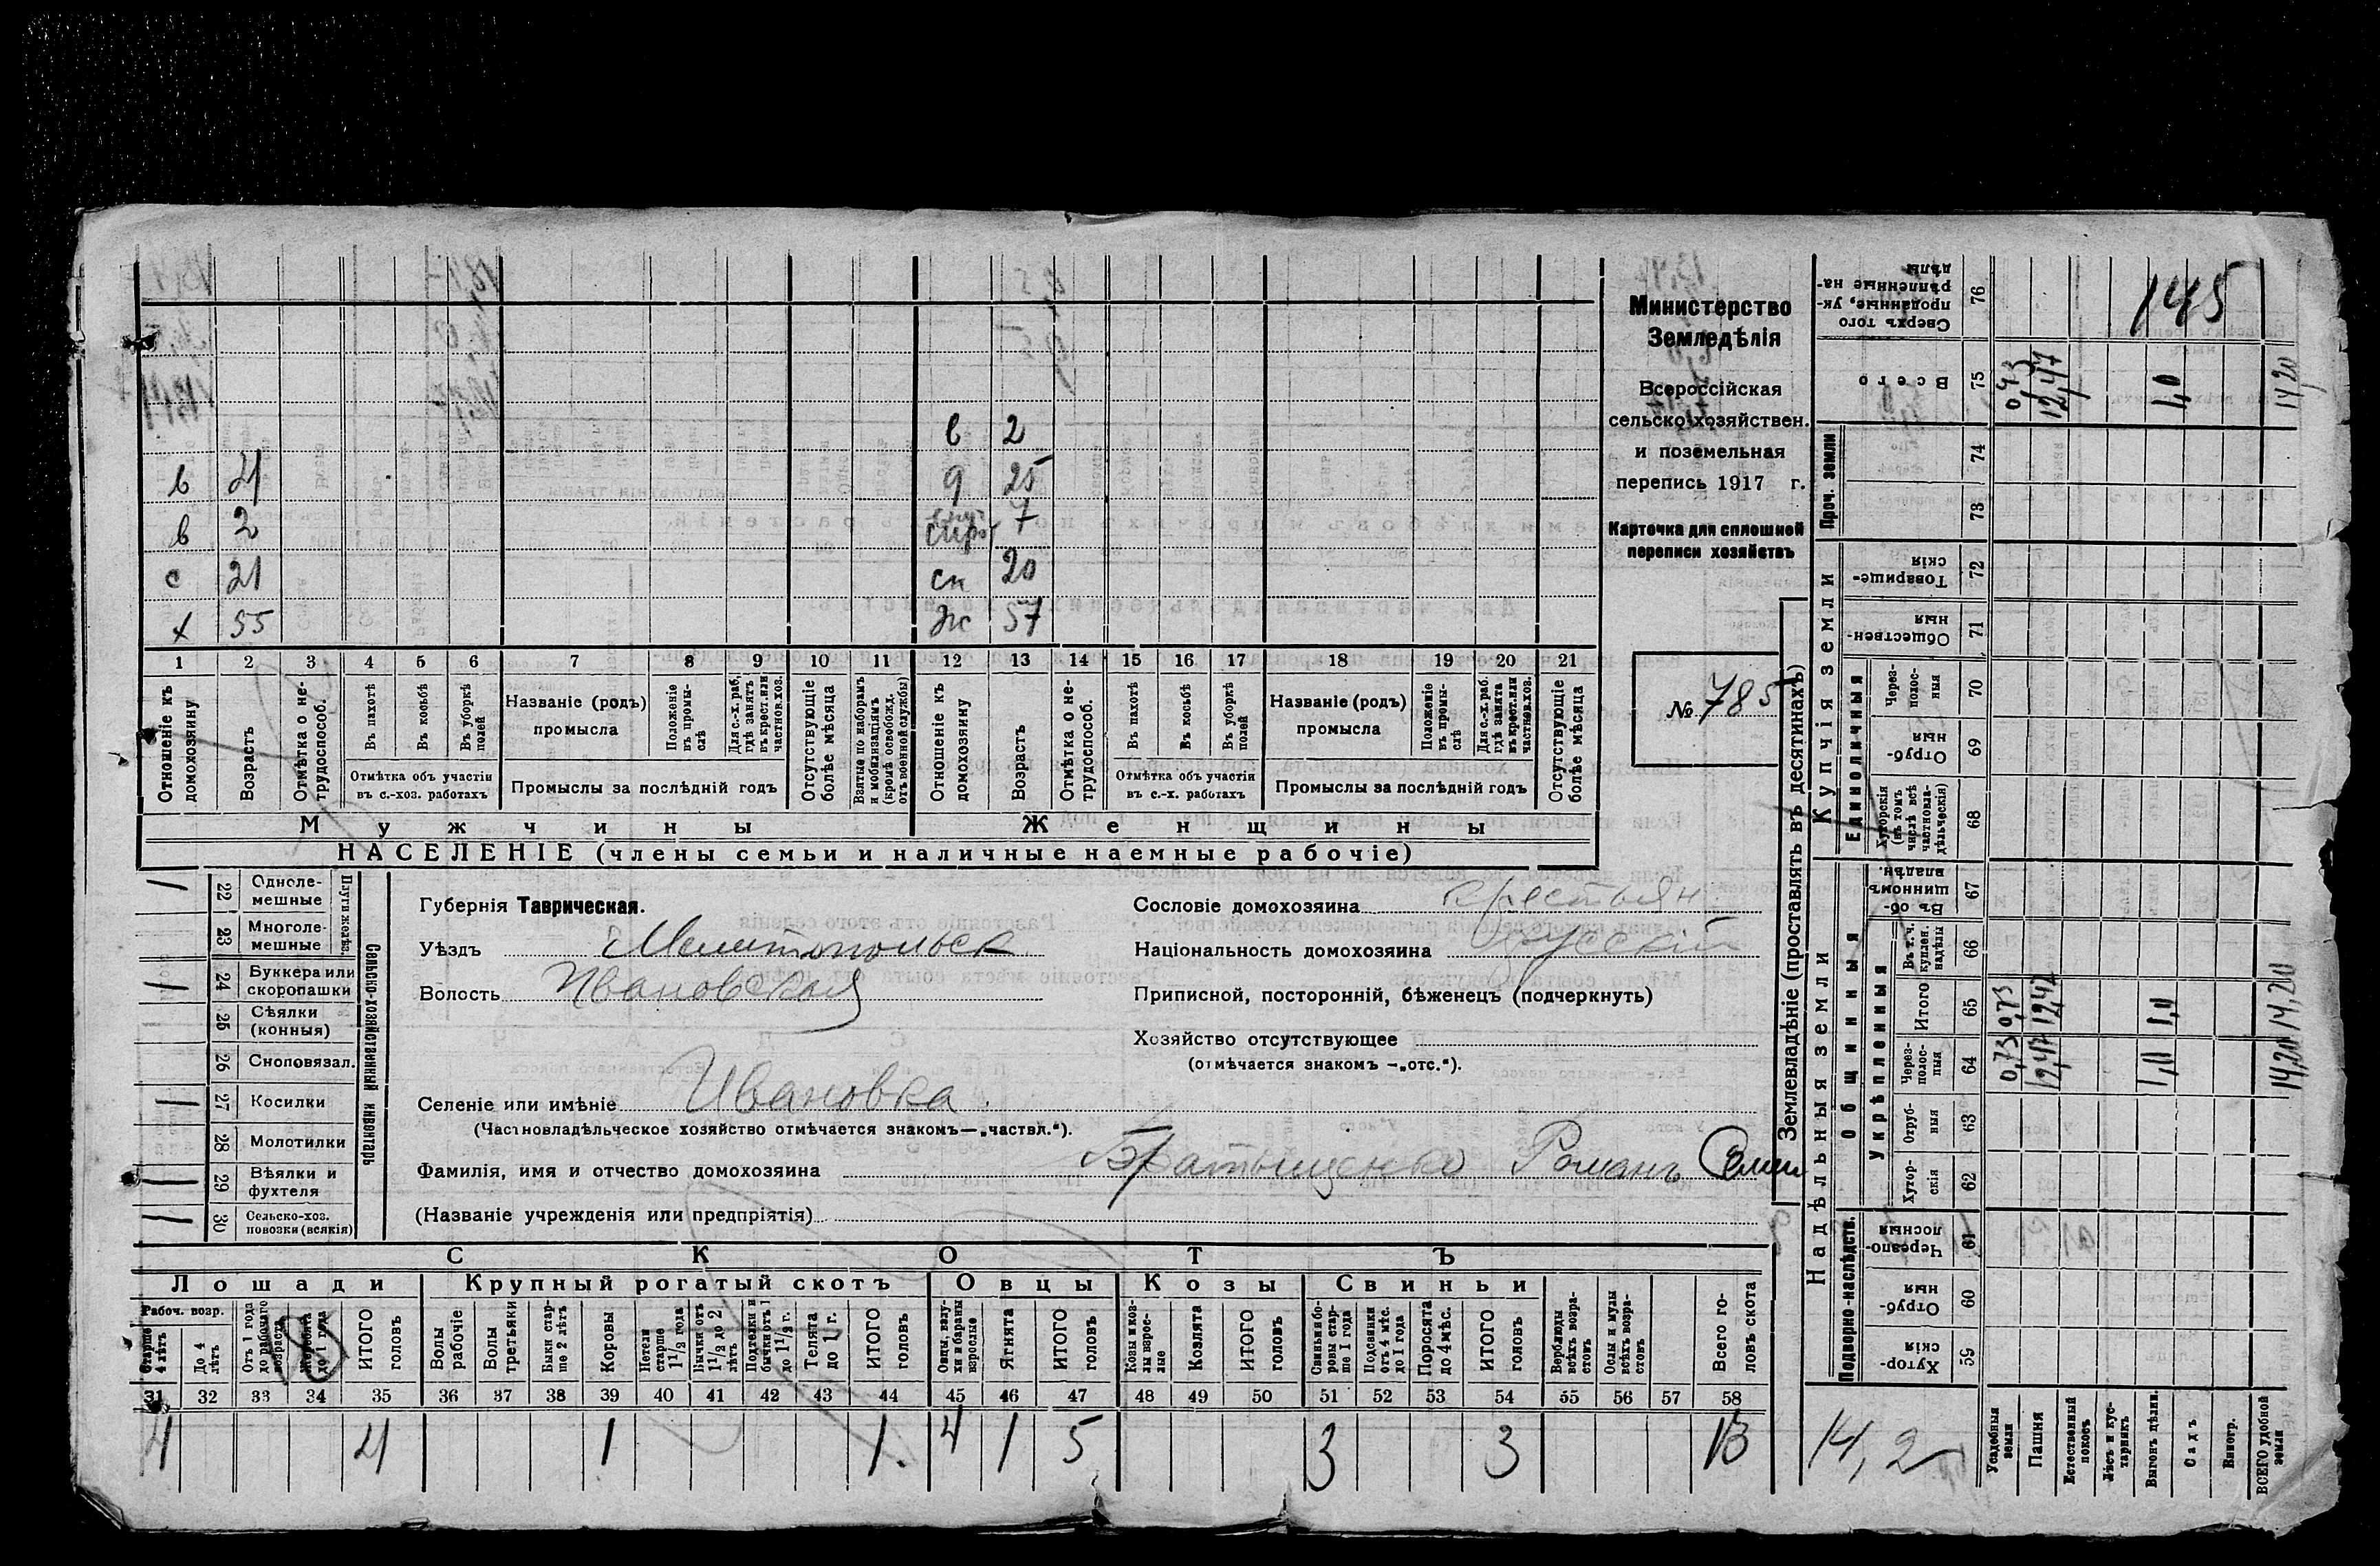 Министерство
Земледѣлія
Всероссійская
сельско-хозяйствен.
и поземельная
перепись 1917 г.
Карточка для сплошной
переписи хозяйствъ
№ 785
в 2
в 21 д 25
в 2 7
с 21 сн 20
х 55 ж 57
1 2 3 4 5 6 7 8 9 10 11 12 13 14 15 16 17 18 19 20 21
Отношеніе къ домохозяину
Возрастъ
Отмѣтка о нетрудоспособ.
Въ пахотѣ
Въ косьбѣ
Въ уборкѣ полей
Отмѣтка объ участіи
въ с.-хоз. работахъ
Названіе (родъ)
промысла
Положеніе въ промыслѣ
Для с.-х. раб, гдѣ занятъ въ крест. или частнов. хоз.
Промыслы за послѣдній годъ
Отсутствующіе болѣе мѣсяца
Взятые по наборамъ и мобилизаціямъ (кромѣ освобожд. отъ военной службы)
Отношеніе къ домохозяину
Возрастъ
Отмѣтка о нетрудоспособ.
Въ пахотѣ
Въ косьбѣ
Въ уборкѣ полей
Отмѣтка объ участіи
въ с.-х. работахъ
Названіе (родъ)
промысла
Положеніе въ промыслѣ
Для с.-х. раб. гдѣ занята въ крест. или частнов. хоз.
Промыслы за послѣдній годъ
Отсутствующіе болѣе мѣсяца
Мужчины Женщины
НАСЕЛЕНІЕ (члены семьи и наличные наемные рабочіе)
Сельско-хозяйственный инвентарь
Плуги желѣз.
22 Однолемешные
23 Многолемешные
24 Буккера или скоропашки
25 Сѣялки (конныя)
26 Сноповязал.
27 Косилки
28 Молотилки
29 Вѣялки и фухтеля
30 Сельско-хоз. повозки (всякія)
Губернія Таврическая.
Уѣздъ Мелитопольск
Волость Ивановская
Селеніе или имѣніе Ивановка
(Частновладѣльческое хозяйство отмѣчается знакомъ—„частвл.“).
Фамилія, имя и отчество домохозяина Братыщенко Романъ
(Названіе учрежденія или предпріятія)
Сословіе домохозяина крестьян
Національность домохозяина русскій
Приписной, посторонній, бѣженецъ (подчеркнуть)
Хозяйство отсутствующее
(отмѣчается знакомъ —„отс.“).
СКОТЪ
Лошади Крупный рогатый скотъ Овцы Козы Свиньи
Рабоч. возр.
Старше 4 лѣтъ
До 4 лѣтъ
Отъ 1 года до рабочаго возраста
Жеребята до 1 года
ИТОГО головъ
Волы рабочіе
Волы третьяки
Быки старше 2 лѣтъ
Коровы
Нетели старше 1½ года
Бычки отъ 1½ до 2 лѣтъ
Подтелки и бычки отъ 1 до 1½ г.
Телята до 1 г.
ИТОГО головъ
Овцы, валухи и бараны взрослые
Ягнята
ИТОГО головъ
Козы и козлы взрослые
Козлята
ИТОГО головъ
Свиньи боровы старше 1 года
Подсвинки отъ 4 мѣс. до 1 года
Поросята до 4 мѣс.
ИТОГО головъ
Верблюды всѣхъ возрастовъ
Ослы и мулы всѣхъ возрастовъ
Всего головъ скота
31 32 33 34 35 36 37 38 39 40 41 42 43 44 45 46 47 48 49 50 51 52 53 54 55 56 57 58
4 4 1 1 4 1 5 3 3 13
Землевладѣніе (проставлять въ десятинахъ)
Надѣльныя земли
Купчія земли
Проч. земли
Подворно-наслѣдств.
Общинныя
Укрѣпленныя
Единоличныя
Хуторскія 59
Отрубныя 60
Черезполосныя 61
Хуторскія 62
Отрубныя 63
Черезполосныя 64 0,73 12,47 1,0 14,20
Итого 65 0,73 12,47 1,0 14,20
Въ т. ч. куплен. надѣлы 66
Въ общинномъ владѣн. 67
Хуторскія (въ томъ числѣ всѣ частновладѣльческія) 68
Отрубныя 69
Черезполосныя 70
Общественныя 71
Товарищескія 72
73
74
Всего 75 0,73 12,47 1,0 14,20
Сверхъ того проданные, укрѣпленные надѣлы 76
145
14,2
Усадебныя земли
Пашня
Естественный покосъ
Лѣсъ и кустарникъ
Выгонъ цѣлин.
Садъ
Виногр.
ВСЕГО удобной земли